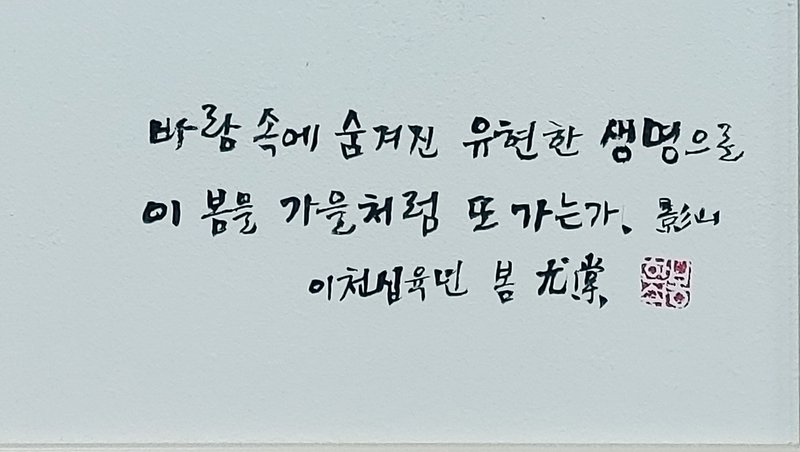 바람 속에 숨겨진 유현한 생명으로
이 봄물 가을처럼 또 가는가. 影山
이천십육년 봄 尤掌